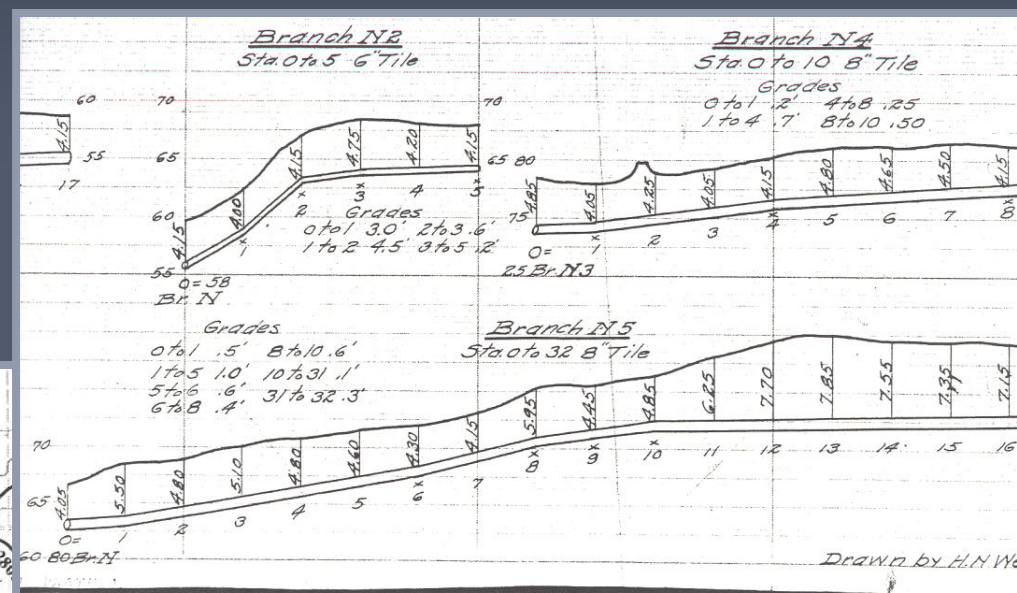 60
4.15
55
17
Branch N2
Sta. 0 to 5 6" Tile
70
70
65
65
60
55
4.15 4.00 4.15 4.75 4.20 4.15
1 2 3 4 5
0=58
Br. N
Grades
0 to 1 3.0' 2 to 3 .6'
1 to 2 4.5' 3 to 5 .2'
Branch N4
Sta. 0 to 10 8" Tile
Grades
0 to 1 .2' 4 to 8 .25
1 to 4 .7' 8 to 10 .50
80
75
4.85 4.05 4.25 4.05 4.15 4.80 4.65 4.50 4.15
0= 1 2 3 4 5 6 7 8
25 Br. N3
Grades
0 to 1 .5' 8 to 10 .6'
1 to 5 1.0' 10 to 31 .1'
5 to 6 .6' 31 to 32 .3'
6 to 8 .4'
Branch N5
Sta. 0 to 32 8" Tile
70
65
60
4.05 5.50 4.80 5.10 4.80 4.60 4.30 4.15 5.95 4.45 4.85 6.25 7.70 7.85 7.55 7.35 7.15
0= 1 2 3 4 5 6 7 8 9 10 11 12 13 14 15 16
80 Br. N
Drawn by H.N. Wo